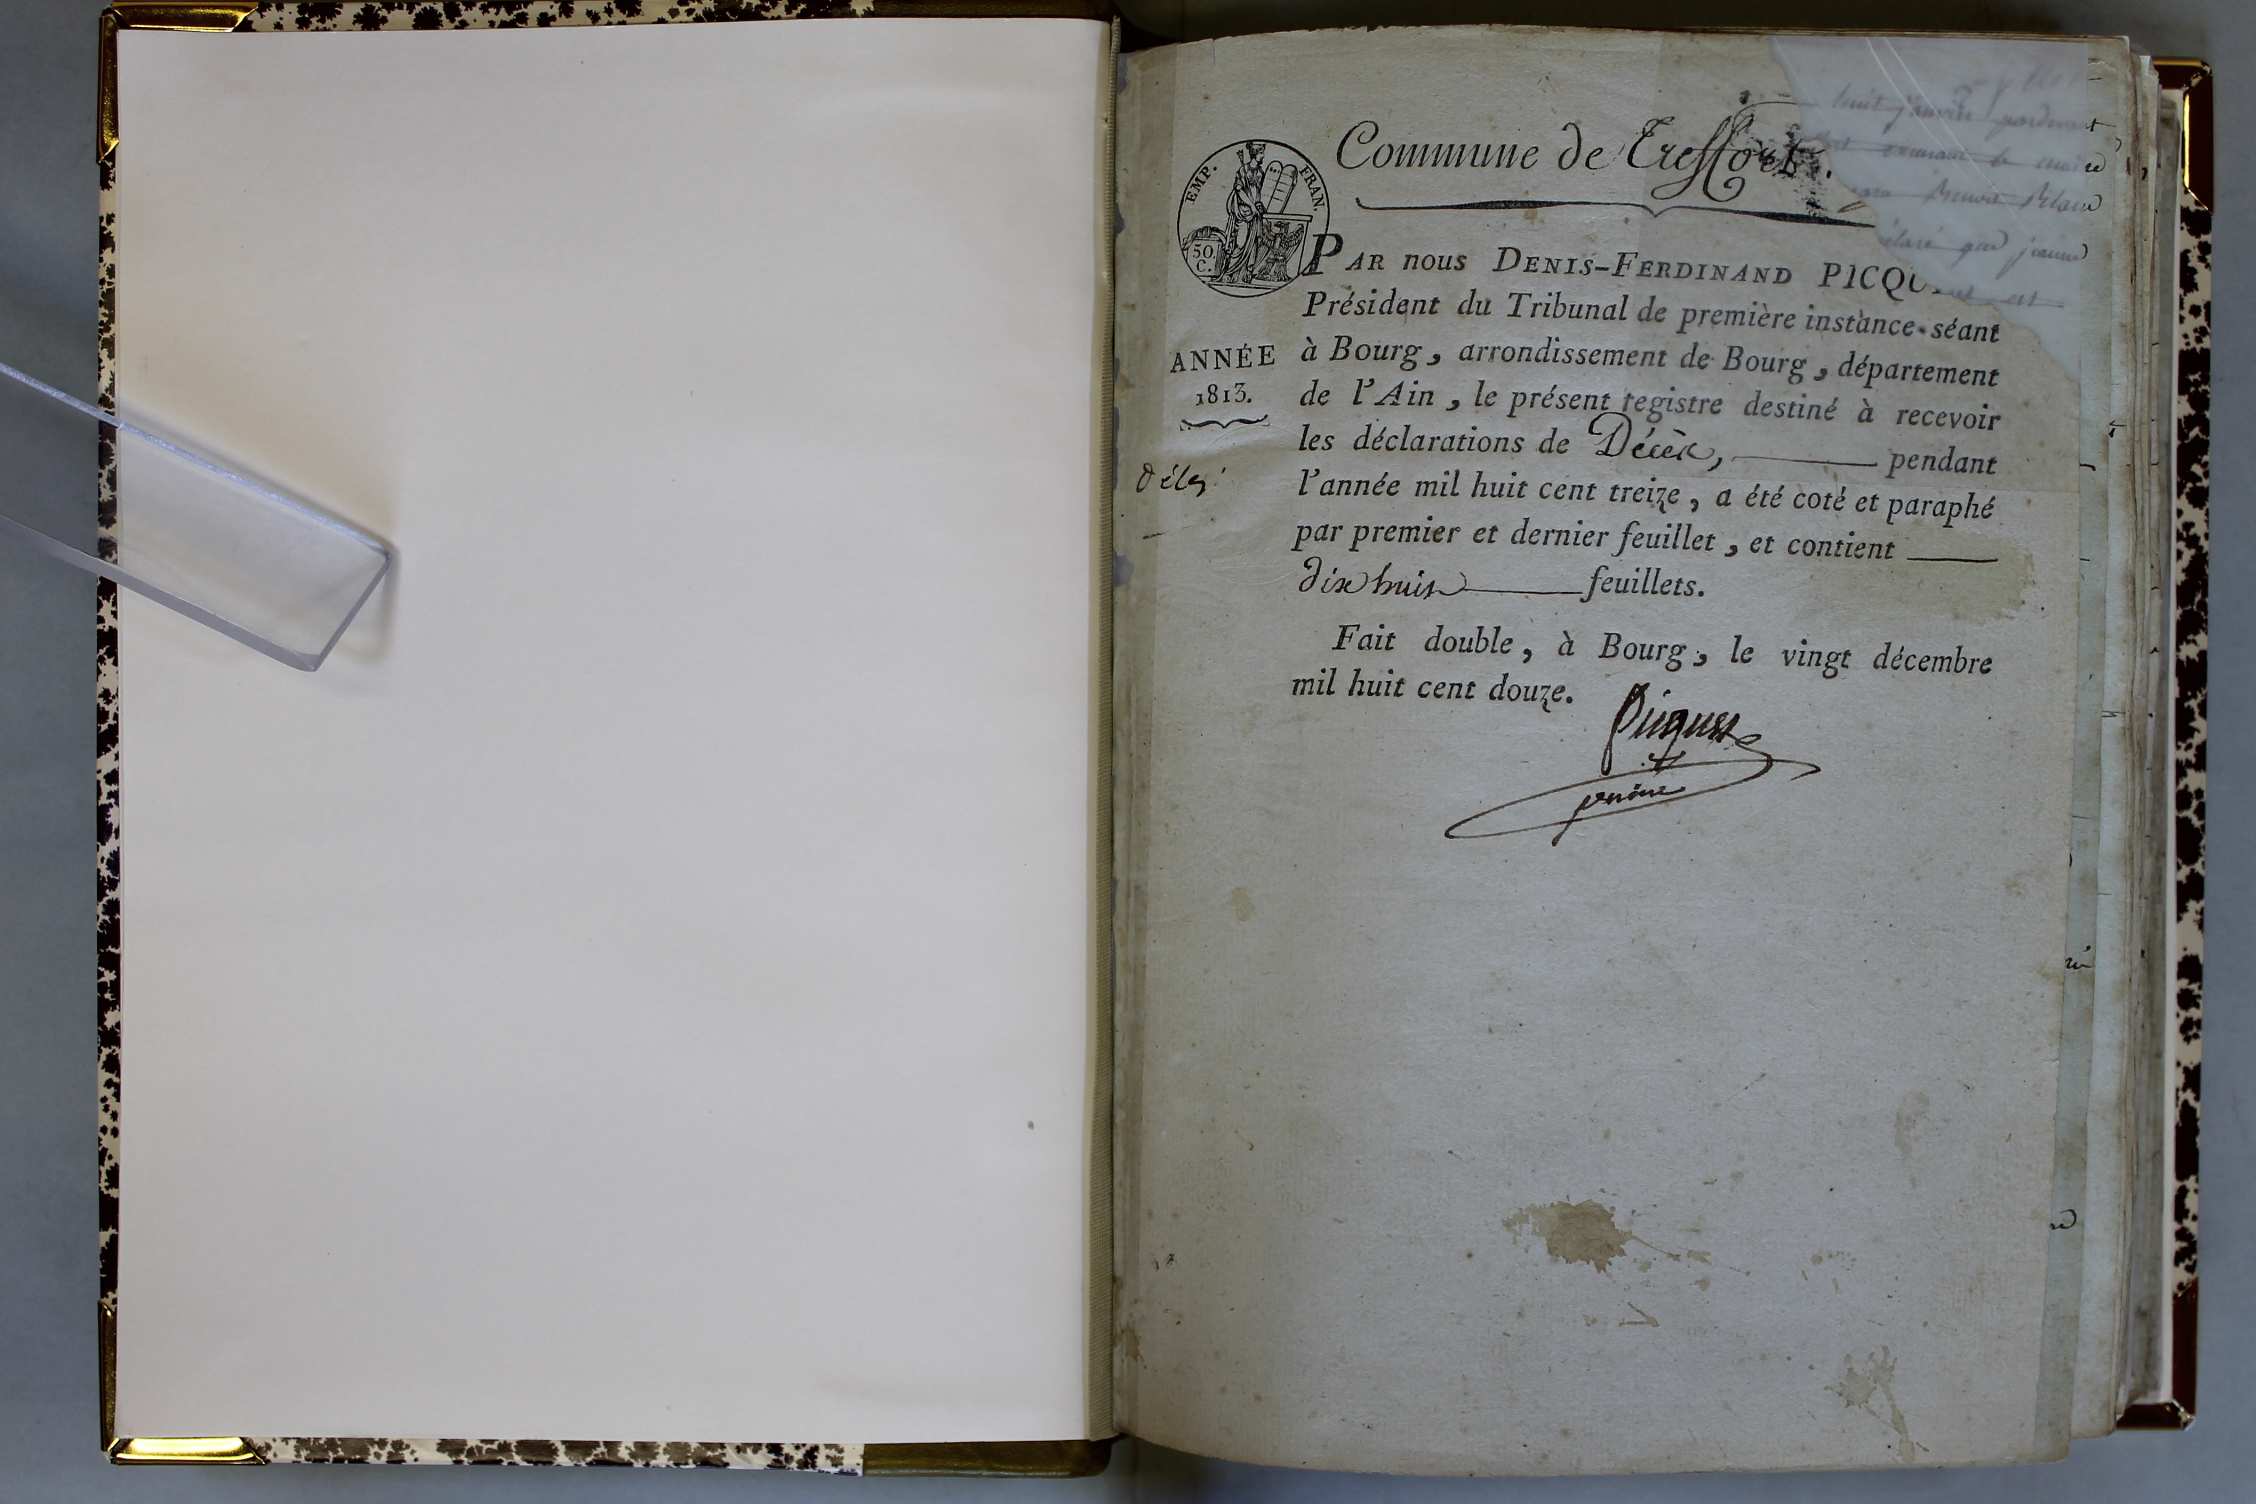 Commune de Treffort.
EMP. FRAN.
50.
C.
PAR nous DENIS-FERDINAND PICQU
Président du Tribunal de première instance séant
à Bourg, arrondissement de Bourg, département
de l'Ain, le présent registre destiné à recevoir
les déclarations de Décès, pendant
l'année mil huit cent treize, a été coté et paraphé
par premier et dernier feuillet, et contient
dix huit feuillets.
Fait double, à Bourg, le vingt décembre
mil huit cent douze.
Picquet
ANNÉE
1813.
huit janvier
le maire
que jeanne